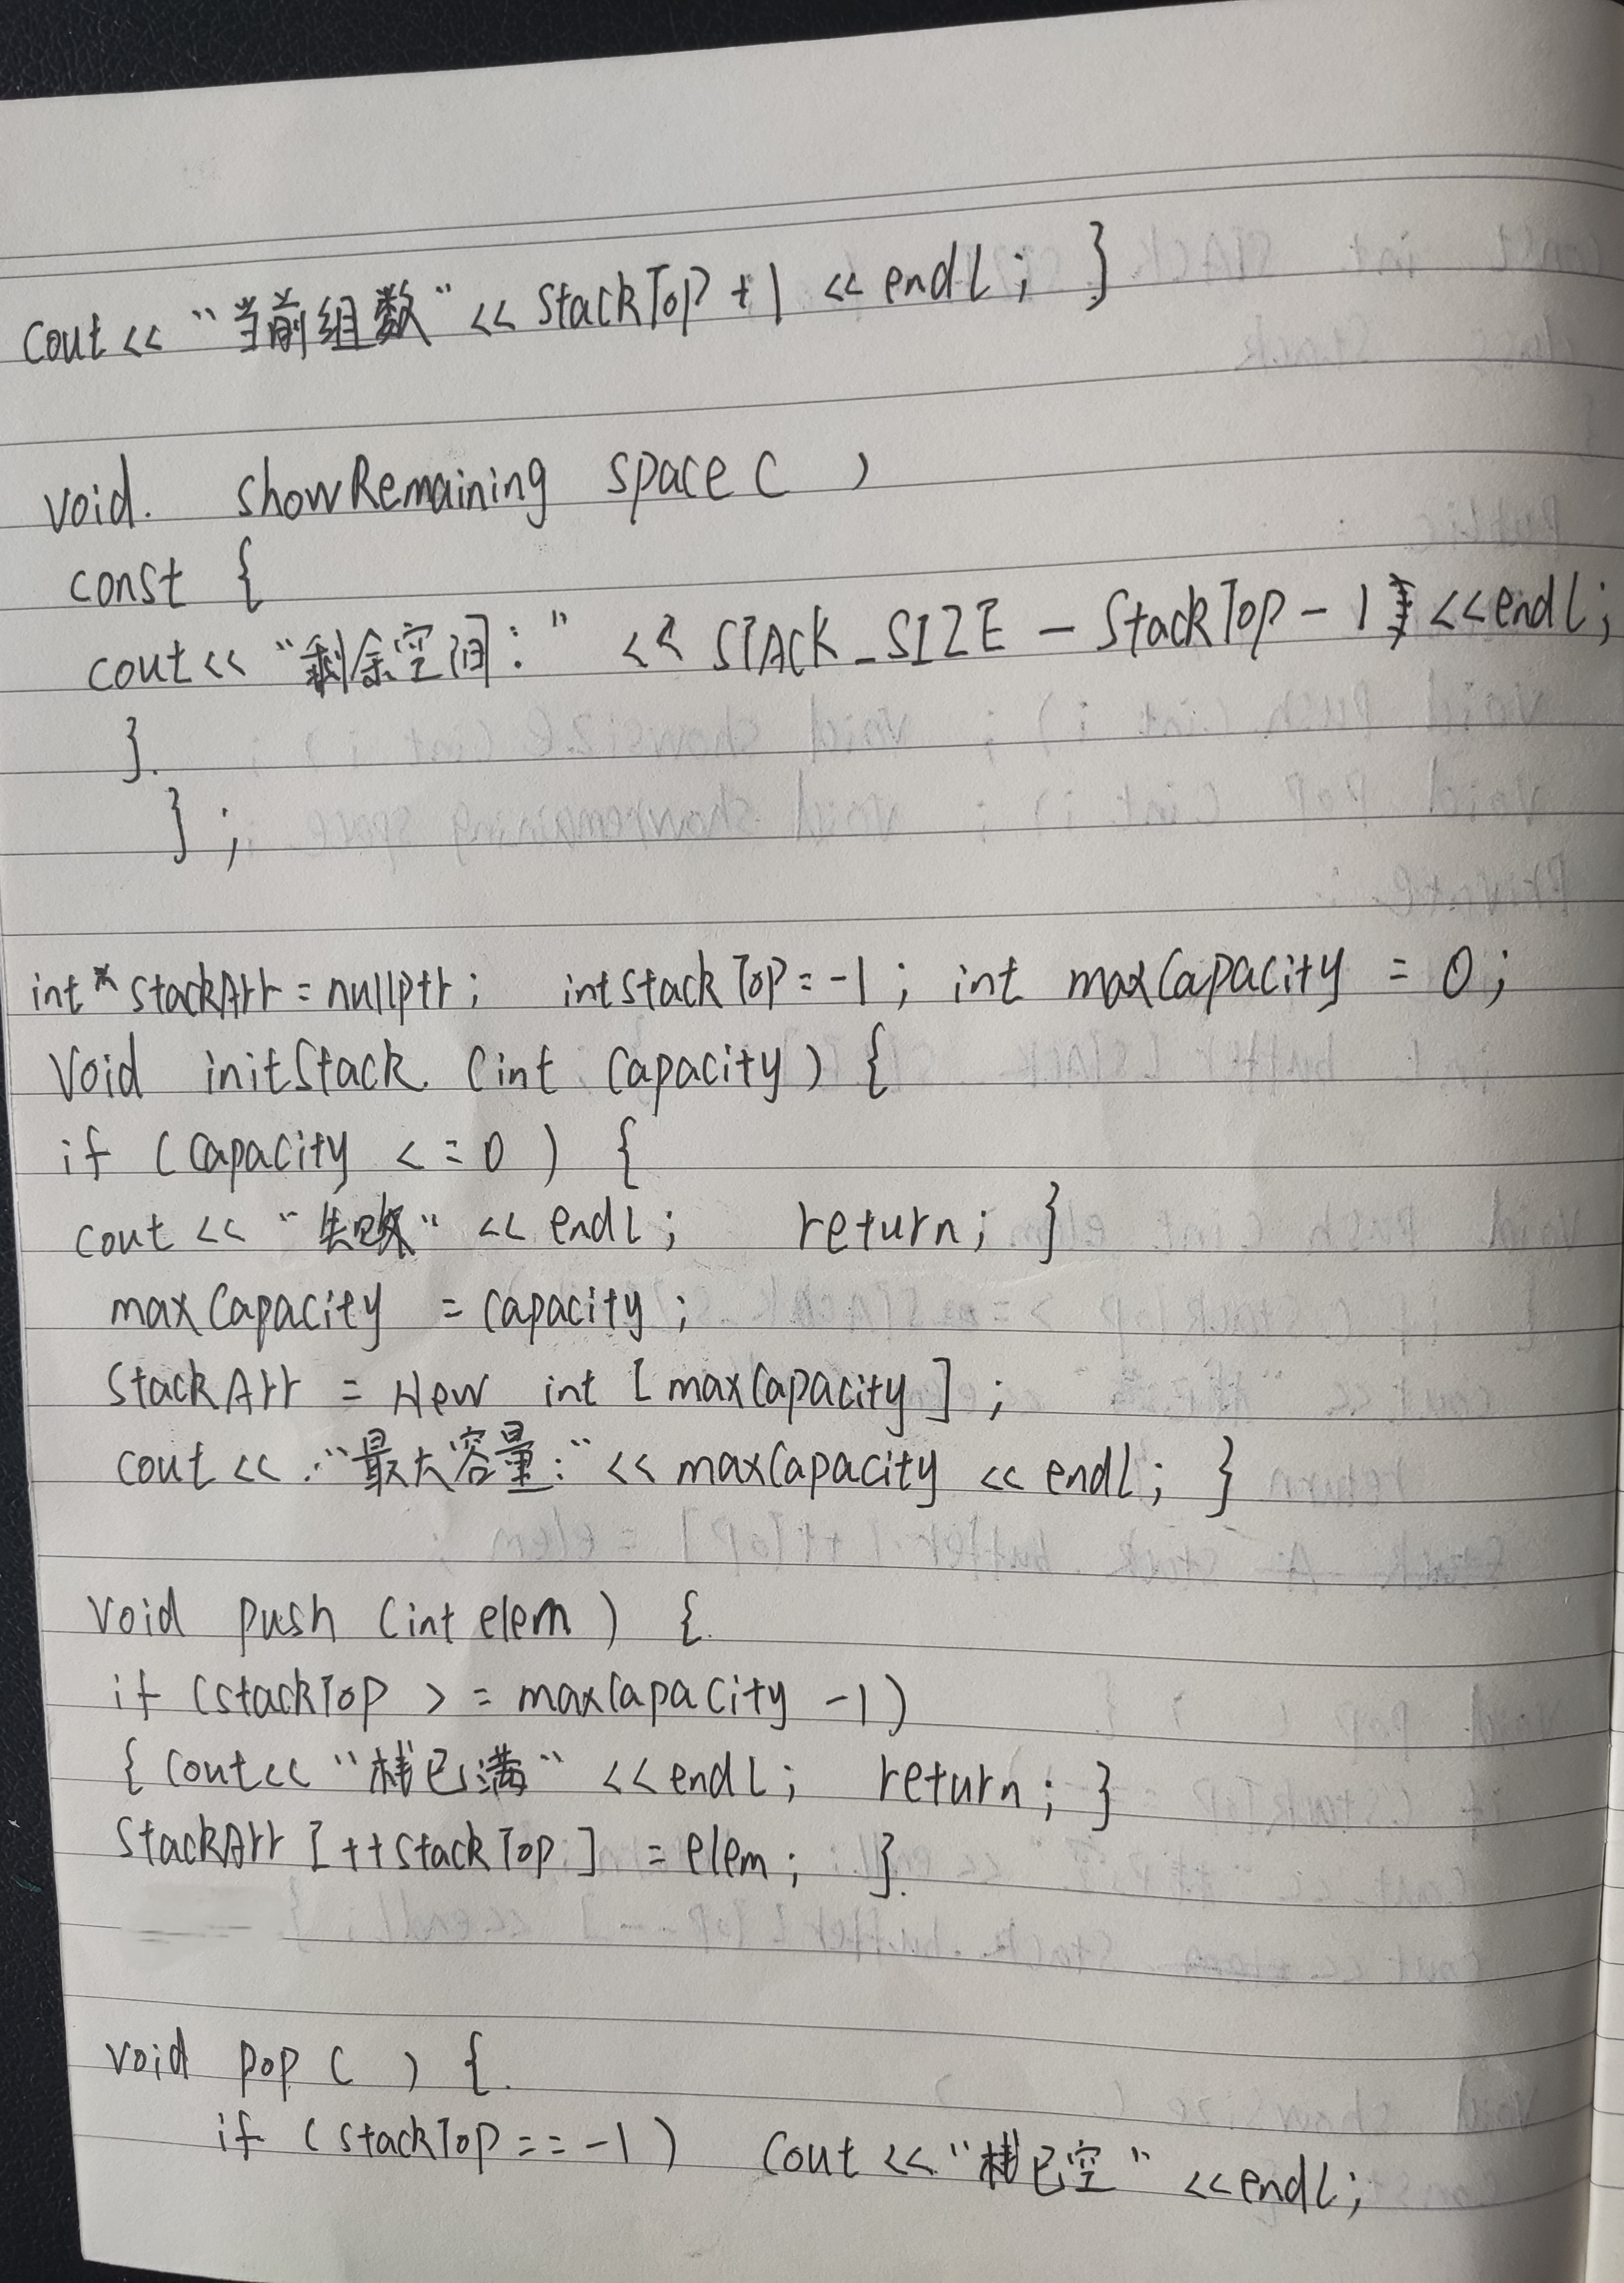 cout << "当前组数" << StackTop + 1 << endl; }
void. showRemaining space ( )
const {
cout << "剩余空间:" << STACK_SIZE - StackTop - 1 << endl;
}.
};
int* stackArr = nullptr; int stackTop = -1; int maxCapacity = 0;
Void initStack (int Capacity) {
if (Capacity <= 0) {
cout << "失败" << endl; return; }
maxCapacity = Capacity;
StackArr = New int [maxCapacity];
cout << "最大容量:" << maxCapacity << endl; }
Void push (int elem) {
if (stackTop >= maxCapacity -1)
{ cout << "栈已满" << endl; return; }
StackArr [++stackTop] = elem; }
void pop ( ) {
if (stackTop == -1) cout << "栈已空" << endl;